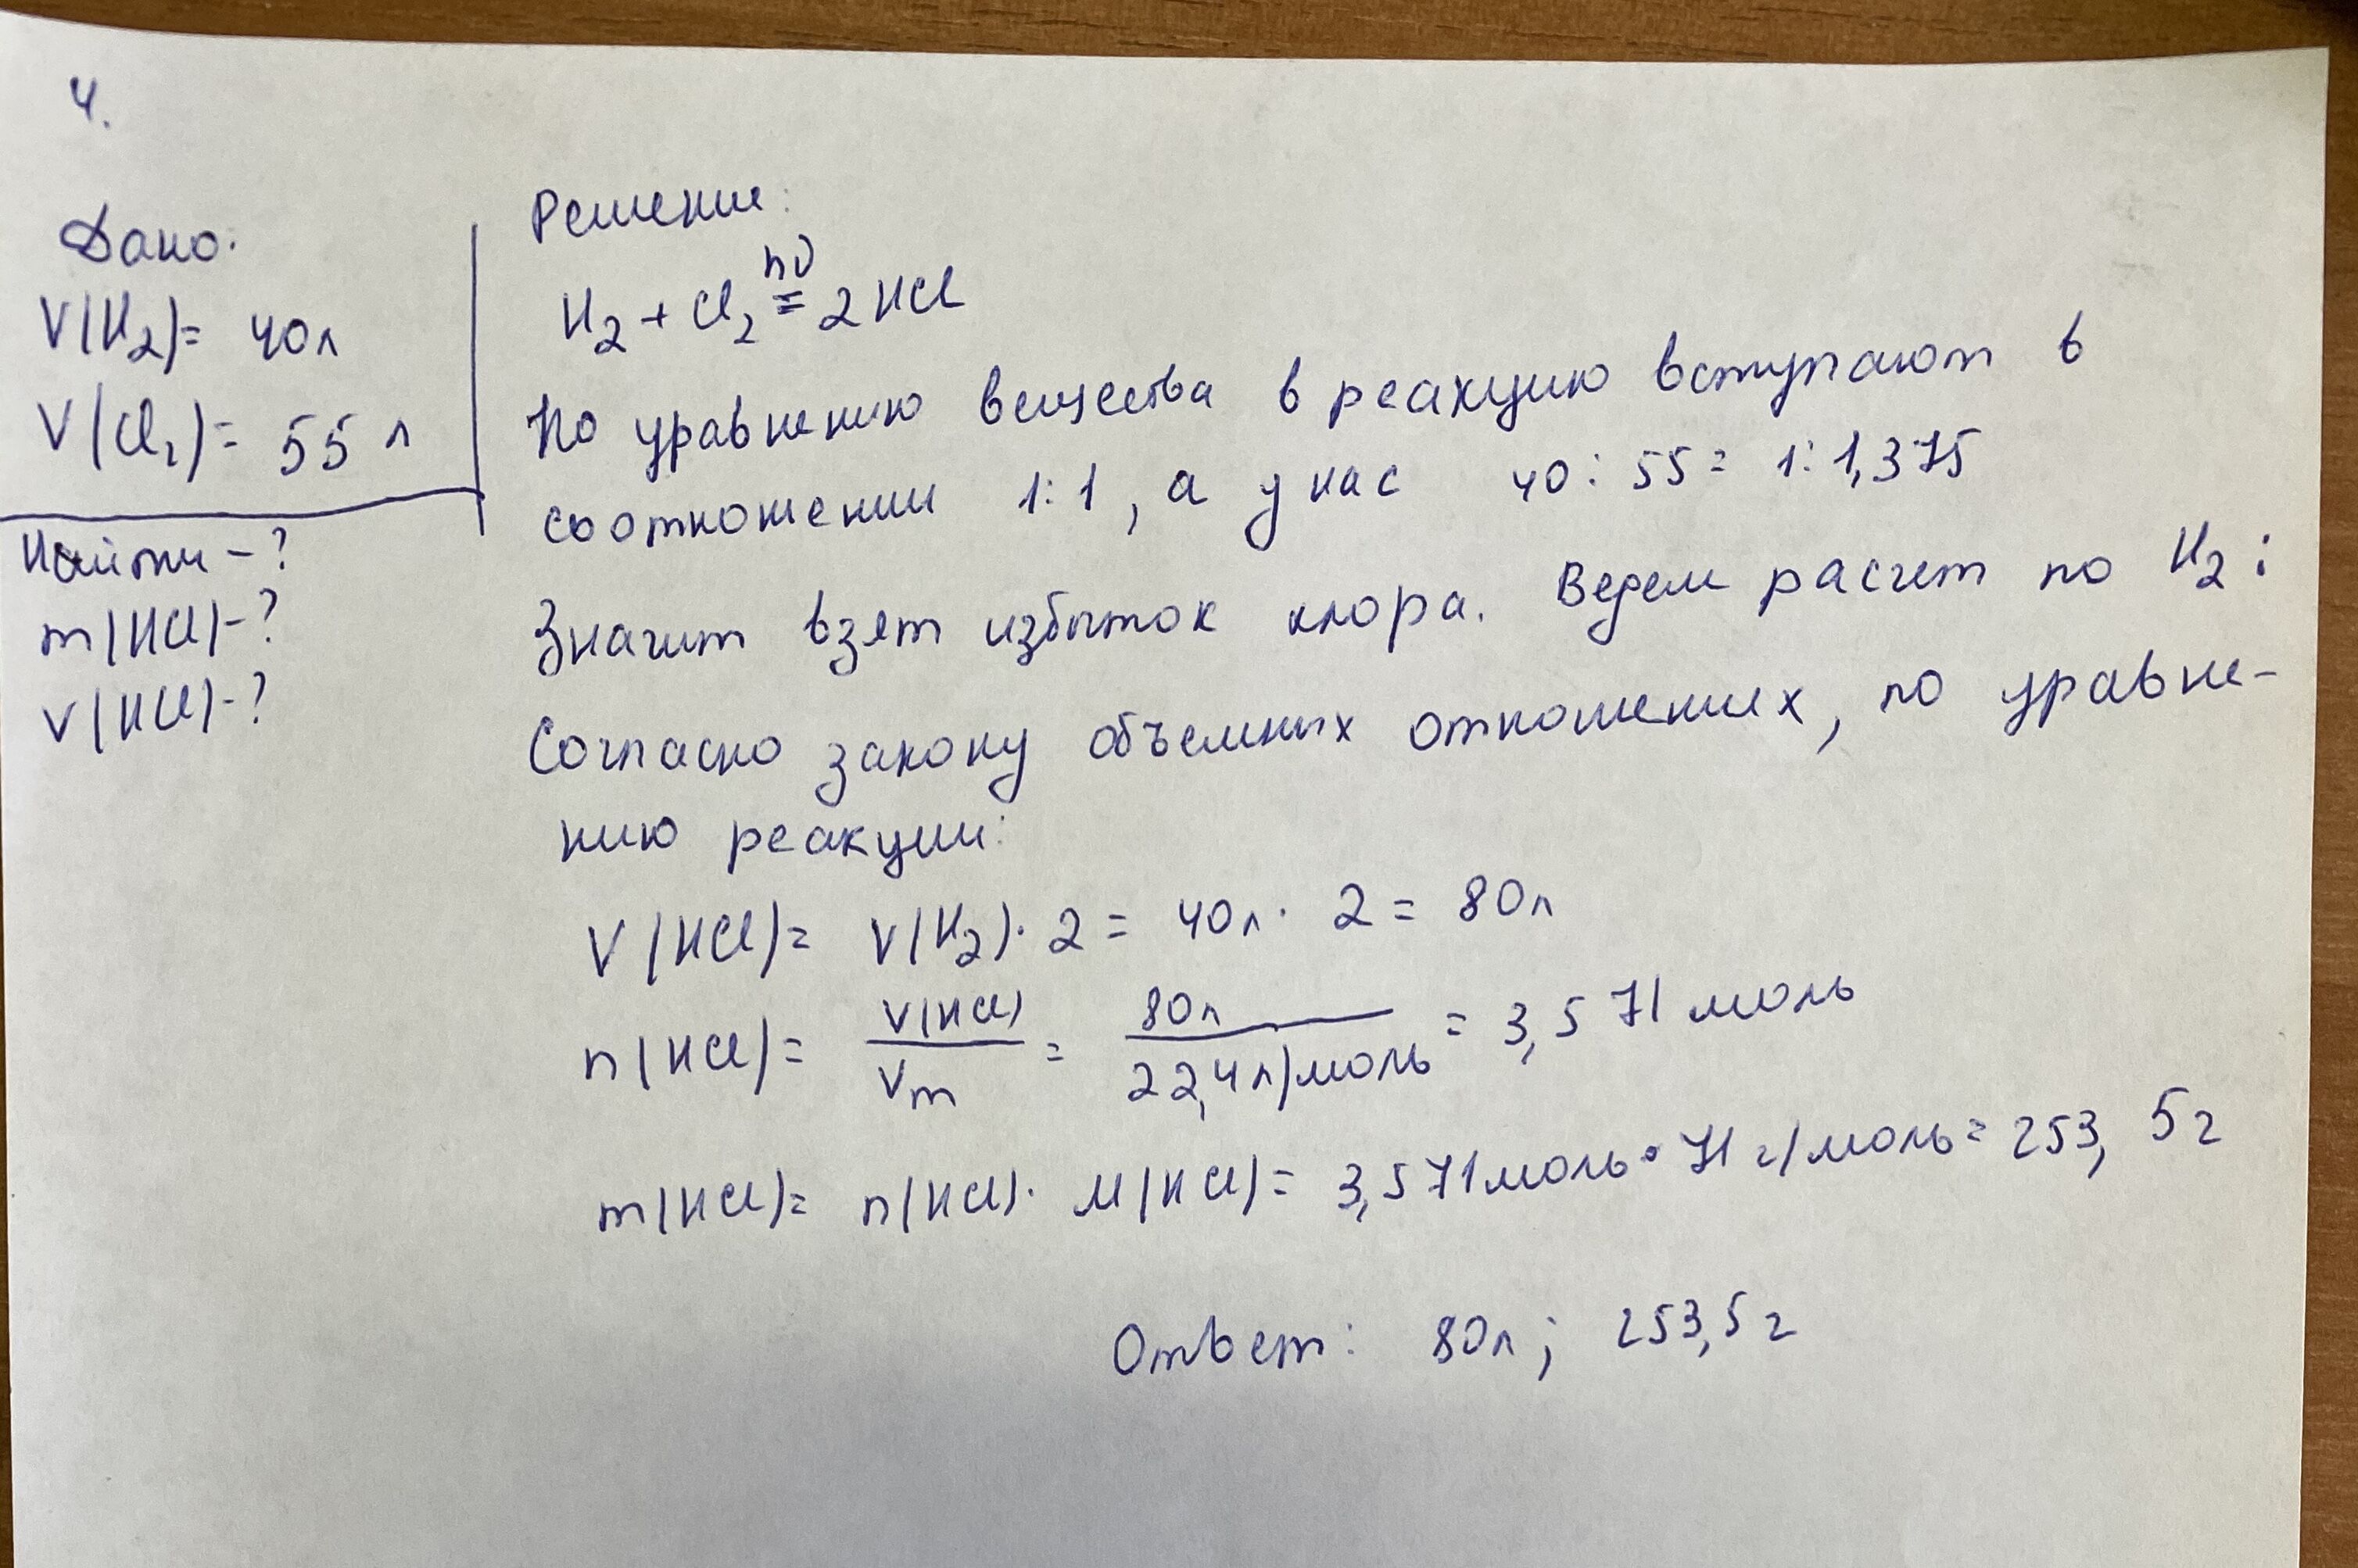 4.
Дано:
V(H2)= 40л
V(Cl2)= 55 л
Найти - ?
m(HCl)-?
V(HCl)-?
Решение:
hν
H2 + Cl2 = 2HCl
По уравнению вещества в реакцию вступают в
соотношении 1:1, а у нас 40:55= 1:1,375
Значит взят избыток хлора. Ведем расчет по H2:
Согласно закону объемных отношениях, по уравне-
нию реакции:
V(HCl)= V(H2)·2 = 40л·2 = 80л
n(HCl)= V(HCl)/Vm = 80л/22,4л/моль = 3,571 моль
m(HCl)= n(HCl)·M(HCl)= 3,571моль·71г/моль= 253,5г
Ответ: 80л; 253,5г